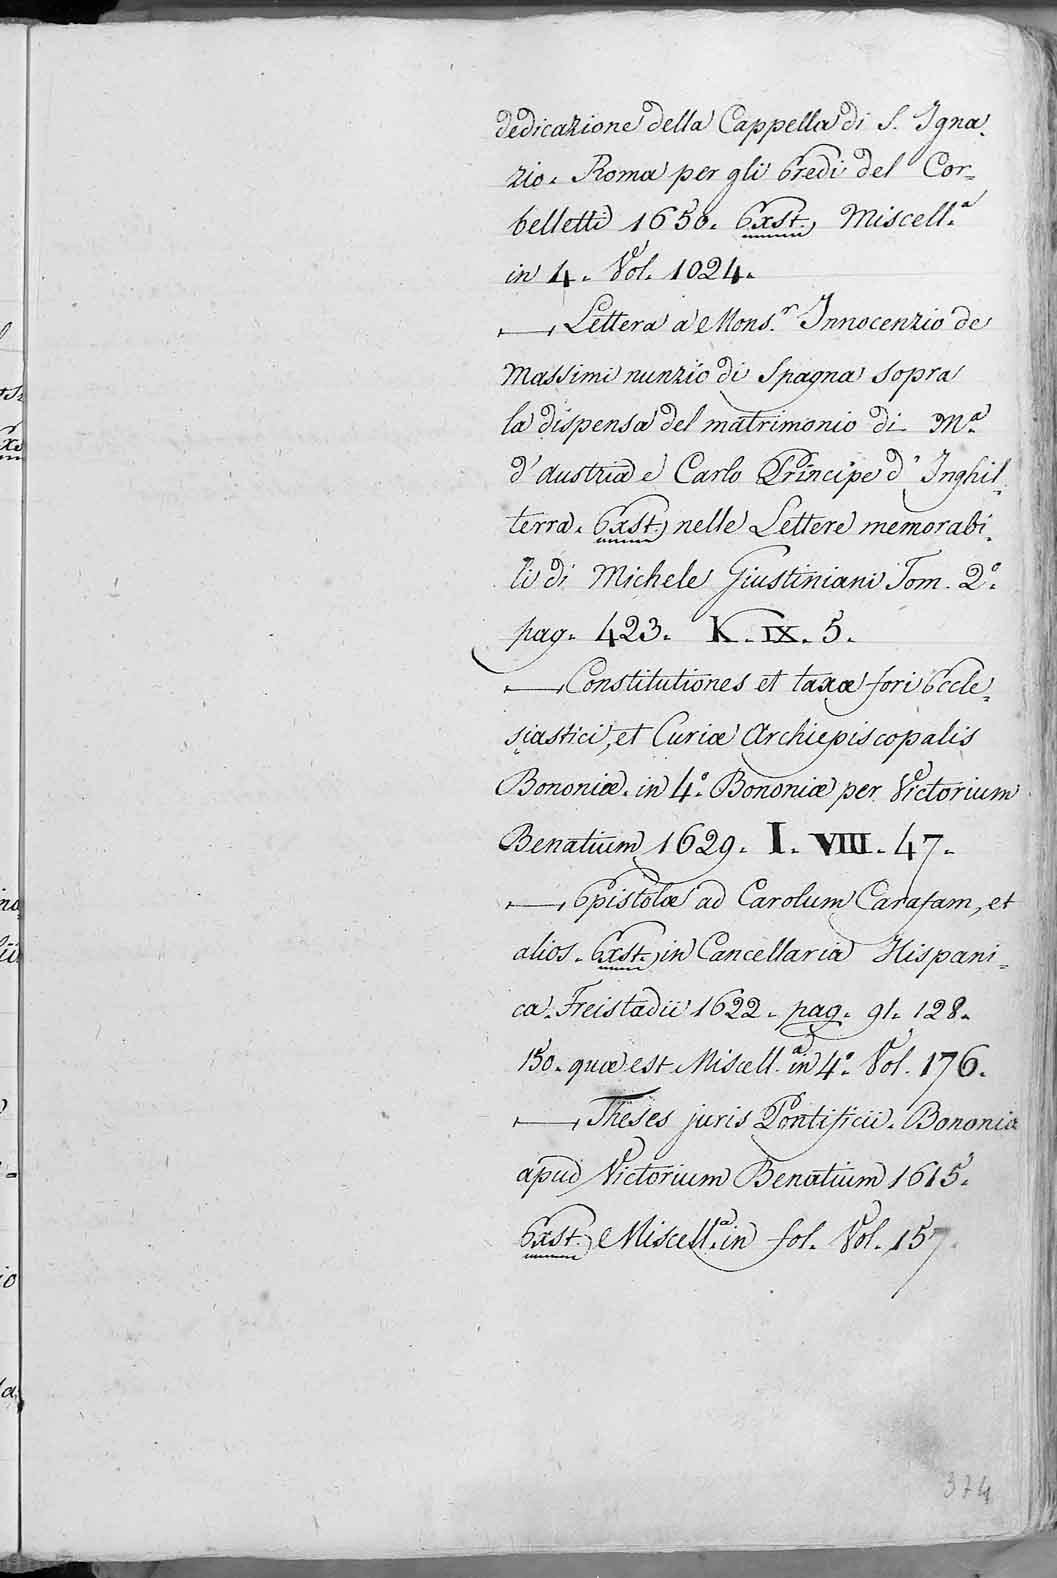 dedicazione della Cappella di S. Igna-
zio. Roma per gli Eredi del Cor-
belletti 1650. Exst. Miscell.ª
in 4. Vol. 1024.
—, Lettera a Mons.r Innocenzio de
Massimi nunzio di Spagna sopra
la dispensa del matrimonio di M.ª
d'Austria e Carlo Principe d'Inghil-
terra. Exst. nelle Lettere memorabi-
li di Michele Giustiniani Tom. 2.º
pag. 423. K. IX. 5.
—, Constitutiones et taxæ fori Eccle-
siastici, et Curiæ Archiepiscopalis
Bononiæ. in 4.º Bononiæ per Victorium
Benatium 1629. I. VIII. 47.
—, Epistolæ ad Carolum Carafam, et
alios. Exst. in Cancellaria Hispani-
ca. Freistadii 1622. pag. 91. 128.
150. quæ est Miscell.ª in 4.º Vol. 176.
—, Theses juris Pontificii. Bononiæ
apud Victorium Benatium 1615.
Exst. Miscell.ª in fol. Vol. 157.
374